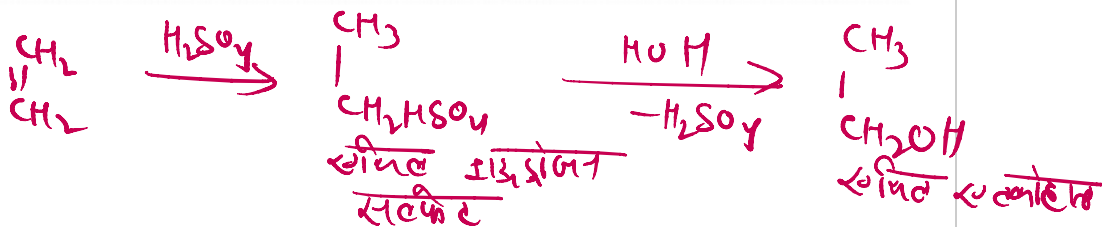 CH₂ = CH₂ —H₂SO₄→ CH₃ – CH₂HSO₄ —HOH / –H₂SO₄→ CH₃ – CH₂OH
एथिल हाइड्रोजन
सल्फेट
एथिल एल्कोहल